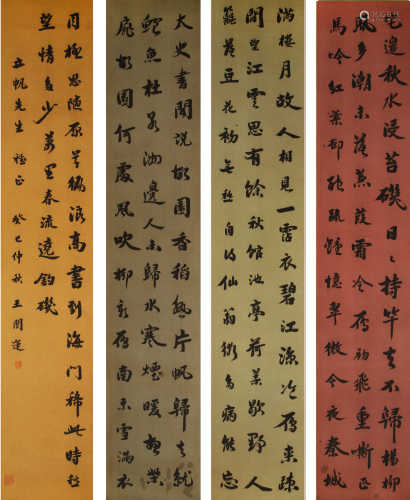 花邊秋水浸苔磯日日持竿去不歸楊柳
風多潮未落蒹葭霜冷雁初飛重嘶匹
馬吟紅葉卻聽疏鐘憶翠微今夜秦城
滿樓月故人相見一霑衣碧江涼冷雁來疎
閒望江雲思有餘秋館池亭荷葉歇野人
籬落豆花初無愁自得仙翁術多病能忘
太史書聞說故園香稻熟片帆歸去就
鱸魚杜若洲邊人未歸水寒煙暖想柴
扉故園何處風吹柳新雁南來雪滿衣
目極思隨原草徧浪高書到海門稀此時愁
望情多少萬里春流遶釣磯
帆先生 正 癸巳仲秋 王闓運